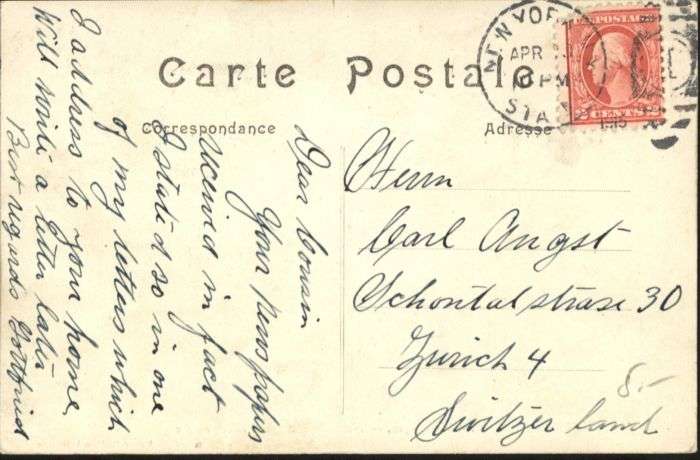 Carte Postale
Correspondance
Adresse
NEW YORK
APR
PM
STA
POSTAGE
CENTS
Dear Cousin
Your Newspapers
received in fact
I stated so in one
of my letters which
I address to your home,
Will write a letter later
Best regards Gottfried
Herrn
Carl Angst
Schontalstrase 30
Zurich 4
Switzerland
8.-